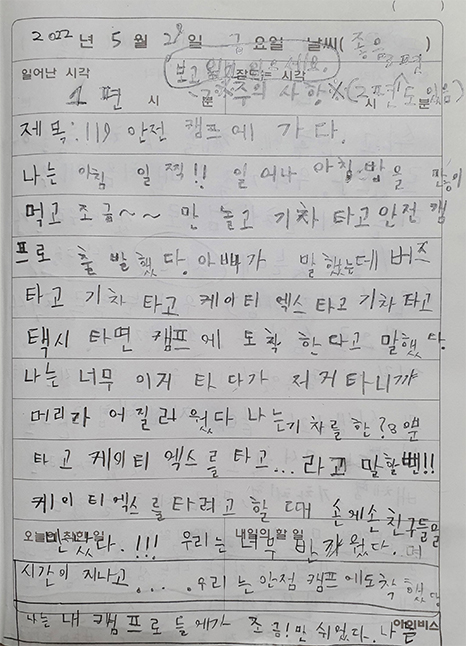 2022년 5월 28일 금요일 날씨(좋음)
보고 읽고 있으세요.
일어난 시각 잠드는 시각
1편 시 분 ※주의 사항※(2편도 있음) 시 분
제목: 119 안전 캠프에 가다.
나는 아침 일찍!! 일어나 아침밥을 많이
먹고 조금~~만 놀고 기차 타고 안전 캠
프로 출발했다. 아빠가 말했는데 버스
타고 기차 타고 케이티 엑스 타고 기차 타고
택시 타면 캠프에 도착 한다고 말했다.
나는 너무 이거 타다가 저거 타니까
머리가 어질러웠다 나는 기차를 한 ?용 분
타고 케이티 엑스를 타고...라고 말할 뻔!!
케이티엑스를 타려고 할 때 손에손 친구들을
오늘의 착한일 내일의 할 일
만났다.!!! 우리는 너무 반가웠다. 며
시간이 지나고.... 우리는 안점 캠프에 도착했다
나는 내 캠프로 들에가 조금!만 쉬었다. 나를
아인비스